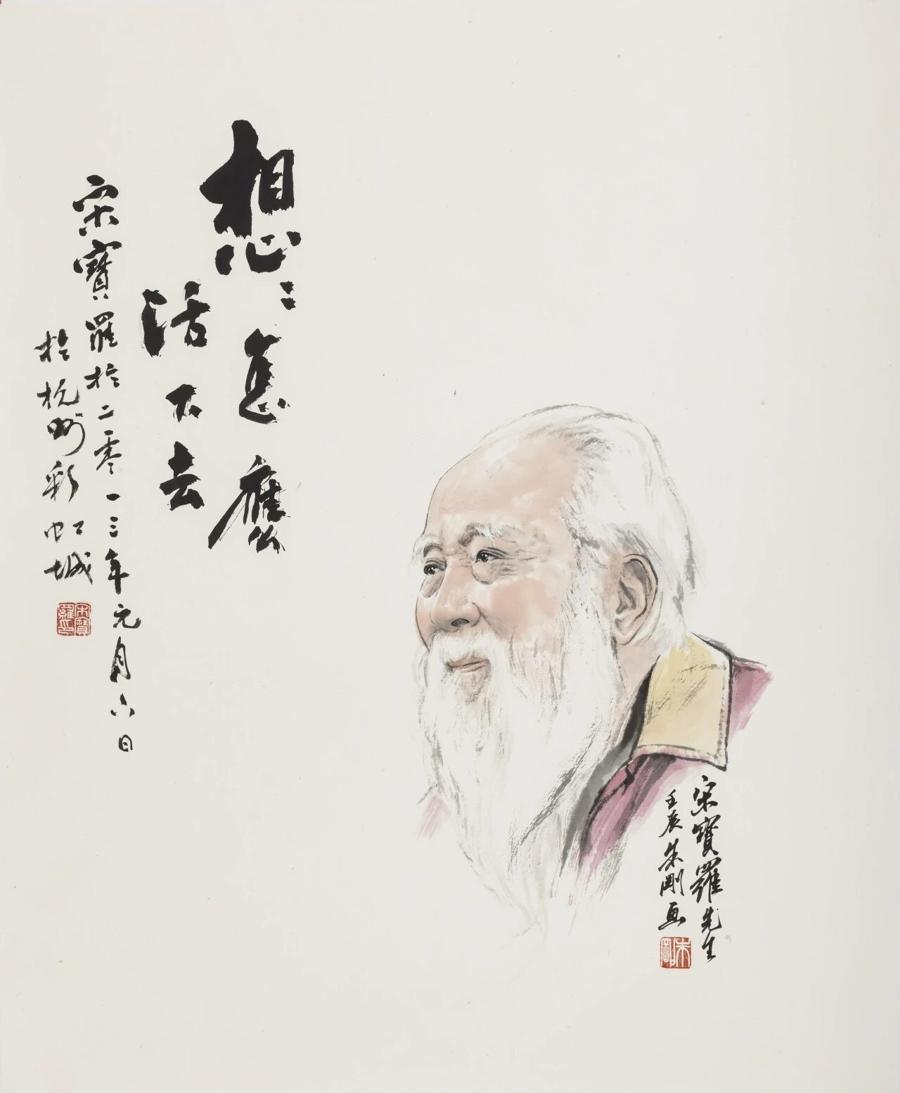 想〻怎麽
活下去
宋寶羅於二零一三年元月六日
於杭州彩虹城
宋寶羅印
宋寶羅先生
壬辰朱剛画
朱剛